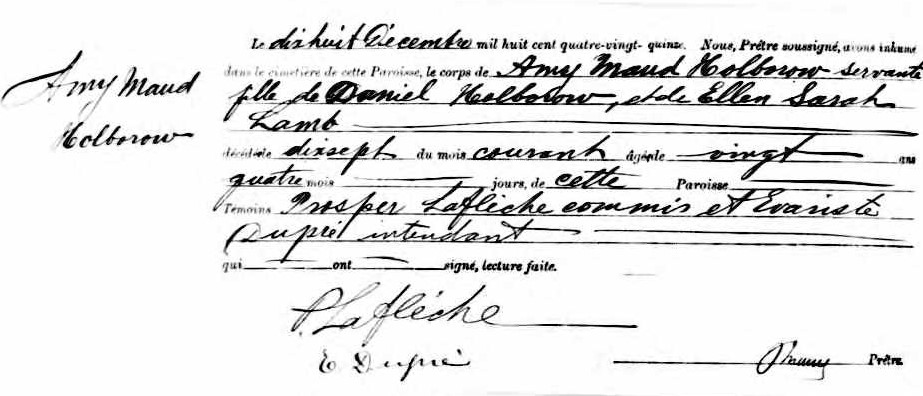 Amy Maud
Holborow
Le dixhuit Décembre mil huit cent quatre-vingt-quinze. Nous, Prêtre soussigné, avons inhumé
dans le cimetière de cette Paroisse, le corps de Amy Maud Holborow servante
fille de Daniel Holborow, et de Ellen Sarah
Lamb
décédée le dixsept du mois courant âgée de vingt ans
quatre mois jours, de cette Paroisse
Témoins Prosper Laflèche commis et Evariste
Dupré intendant
qui ont signé, lecture faite.
P. Laflèche
E. Dupré
Prêtre